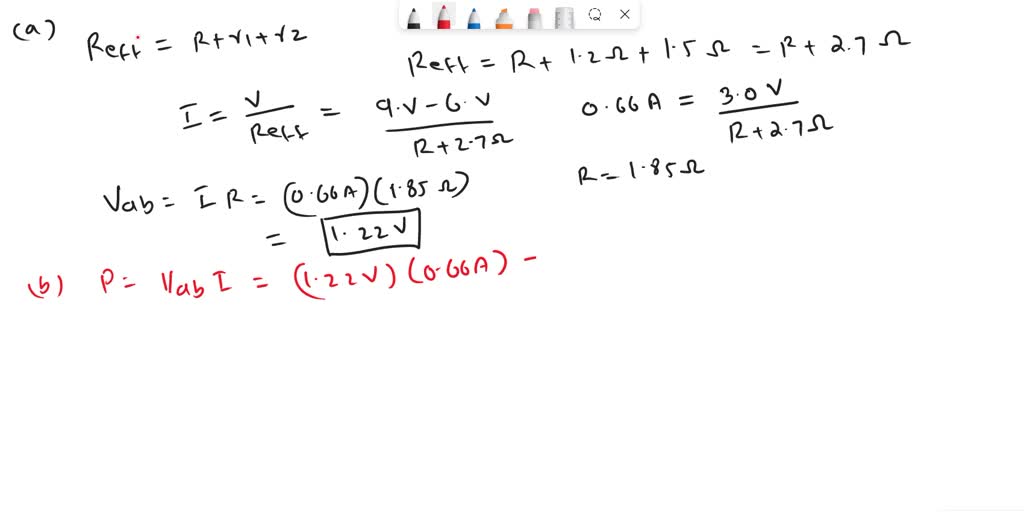 (a) Reff = R+r1+r2
Reff = R+ 1.2Ω + 1.5 Ω = R + 2.7 Ω
I = V/Reff = 9.V-6.V/R+2.7Ω
0.66A = 3.0 V/R+2.7Ω
R = 1.85Ω
Vab = I R = (0.66A)(1.85 Ω)
= 1.22V
(b) P = Vab I = (1.22V)(0.66A) -